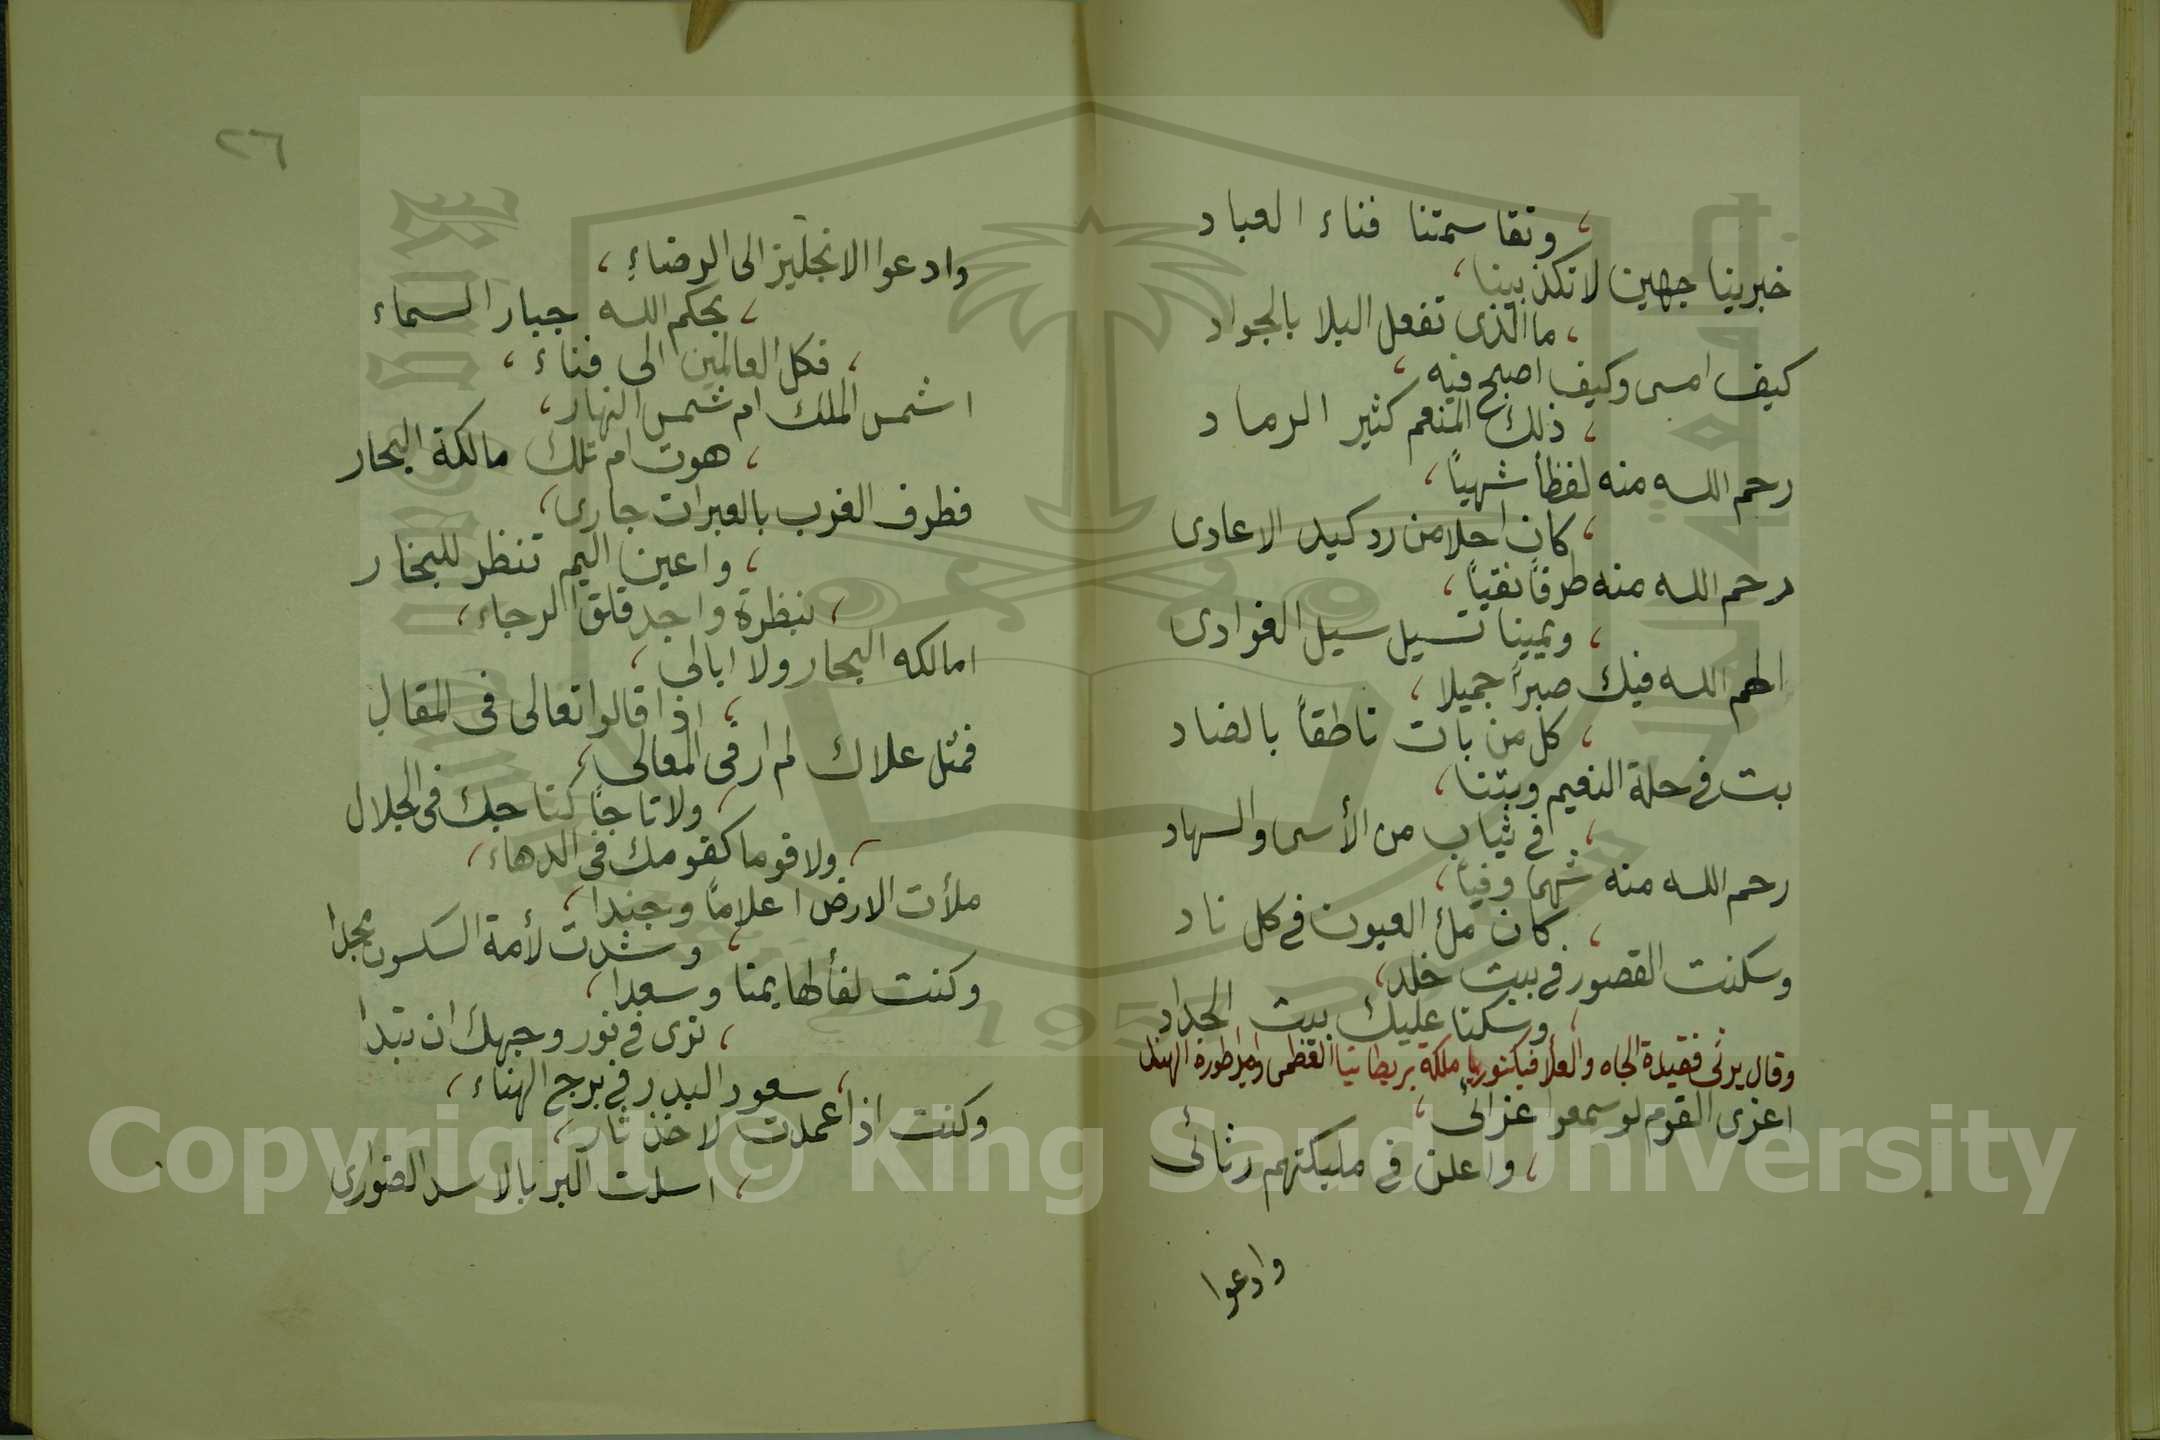 وتقاسمتنا فناء العباد
خبرينا جهين لا تكذبينا،
ما الذى تفعل البلا بالجواد
كيف امسى وكيف اصبح فيه
ذلك المنعم كثير الرماد
رحم الله منه لفظاً شهياً،
كان احلا من رد كيد الاعادى
رحم الله منه طرفاً نقياً،
ويمينا تسيل سيل الغوادى
الهم الله فيك صبراً جميلا،
كل من بات ناطقاً بالضاد
بت فى حلة النعيم وبتنا،
فى ثياب من الأسى والسهاد
رحم الله منه شهما وفياً،
كان ملئ العيون فى كل ناد
وسكنت القصور فى بيت خلد،
وسكنا عليك بيت الحداد
وقال يرثى فقيدة الجاه والعلا فيكتوريا ملكة بريطانيا العظمى وامبراطورة الهند
اعزى القوم لو سمعوا عزائى،
واعلن فى مليكتهم رثائى
وادعوا
٢٦
وادعوا الانجليز الى الرضاءِ،
بحكم الله جبار السماء
فكل العالمين الى فناء،
اشمس الملك ام شمس النهار،
هوت ام تلك مالكة البحار
فطرف الغرب بالعبرات جارى،
واعين اليم تنظر للبخار
بنظرة واجد قلق الرجاء،
امالكه البحار ولا ابالى،
اذا قالوا تعالى فى المقال
فمثل علاك لم ار فى المعالى،
ولا تاجاً كتاجك فى الجلال
ولا قوما كقومك فى الدهاء،
ملأت الارض اعلاماً وجندا،
وشدت لأمة السكسون مجدا
وكنت لفألها يمنا وسعدا،
نرى فى نور وجهك ان تبدا
سعود البدر فى برج الهناء،
وكنت اذا عمدت لاخذ ثار،
اسلت البر بالاسد الضوارى
Copyright © King Saud University
1957